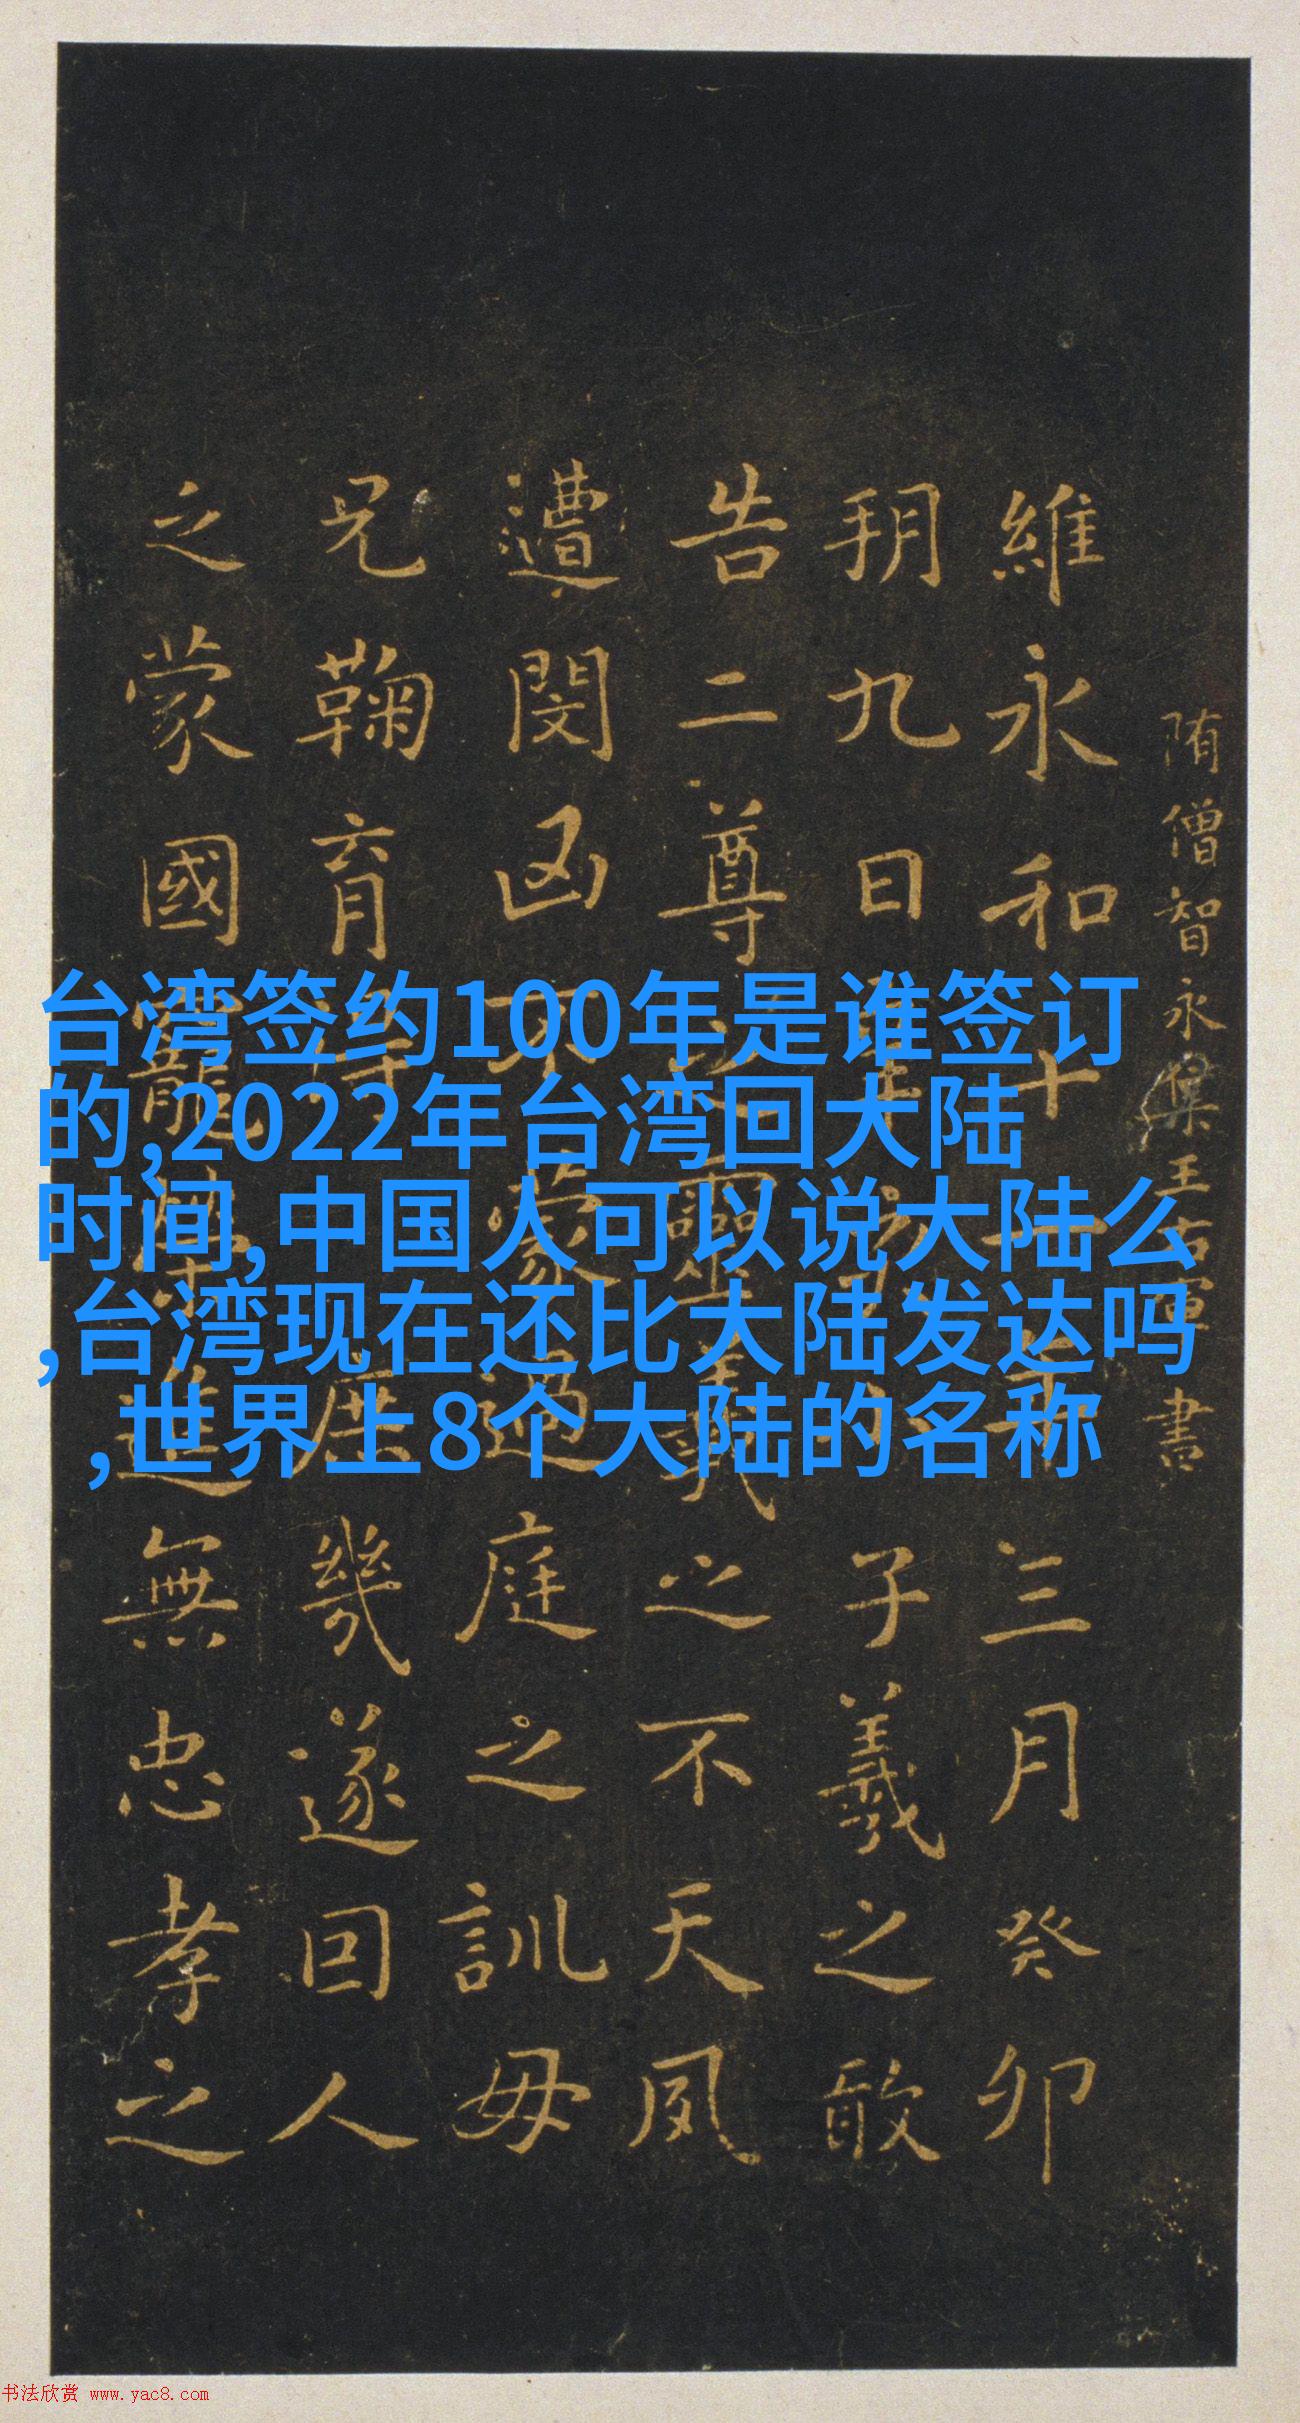 台湾签约100年是谁签订
的,2022年台湾回大陆
时间,中国人可以说大陆么
,台湾现在还比大陆发达吗
,世界上8个大陆的名称
隋僧智永集王右軍書
維永和十一年三月癸卯
朔九日辛子羲之敢
告二尊之靈羲之不天夙
遭閔凶不蒙過庭之訓母
兄鞠育得庶幾遂因人
之蒙國寵榮進無忠孝之
书法欣赏 www.yac8.com